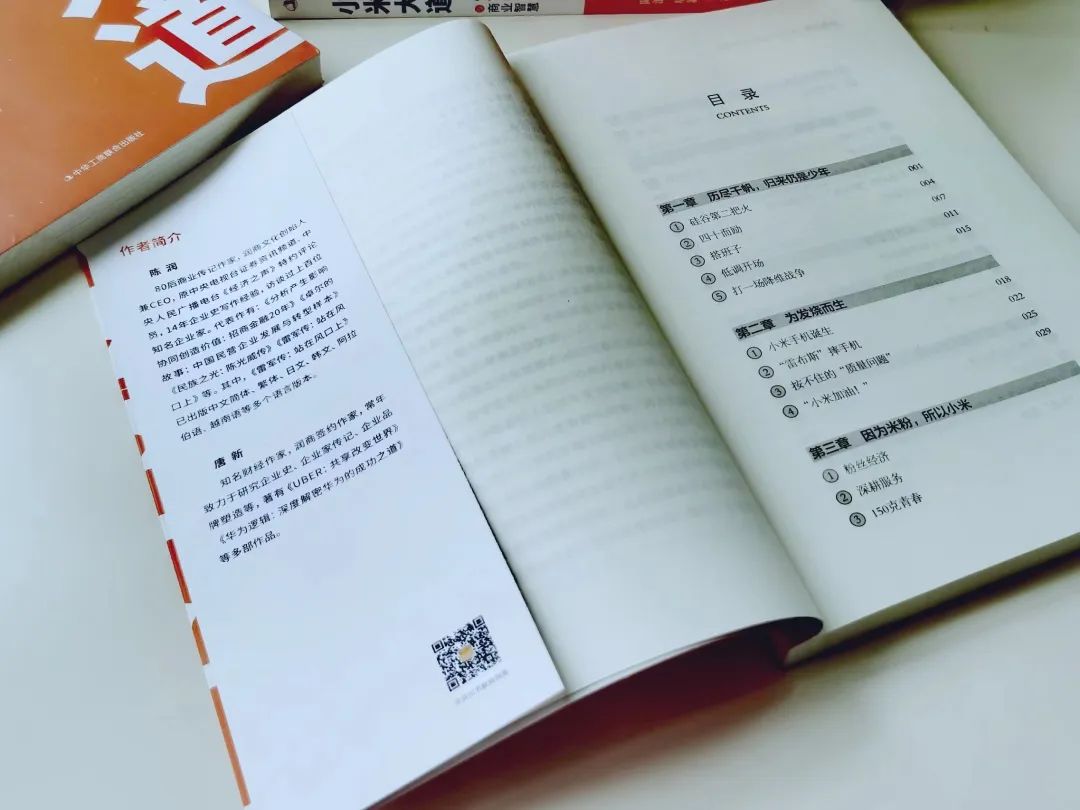 道
中华工商联合出版社
小米大道
商业智慧
作者简介
陈 润
80后商业传记作家，润商文化创始人
兼CEO，原中央电视台证券资讯频道、中
央人民广播电台《经济之声》特约评论
员，14年企业史写作经验，访谈过上百位
知名企业家。代表作有：《分析产生影响
协同创造价值：招商金融20年》《卓尔的
故事：中国民营企业发展与转型样本》
《民族之光：陈光威传》《雷军传：站在风
口上》等。其中，《雷军传：站在风口上》
已出版中文简体、繁体、日文、韩文、阿拉
伯语、越南语等多个语言版本。
唐 新
知名财经作家，润商签约作家，常年
致力于研究企业史、企业家传记、企业品
牌塑造等，著有《UBER：共享改变世界》
《华为逻辑：深度解密华为的成功之道》
等多部作品。
目 录
CONTENTS
第一章 历尽千帆，归来仍是少年
① 硅谷第二把火 001
② 四十而励 004
③ 搭班子 007
④ 低调开场 011
⑤ 打一场降维战争 015
第二章 为发烧而生
① 小米手机诞生 018
② “雷布斯”摔手机 022
③ 按不住的“质量问题” 025
④ “小米加油！” 029
第三章 因为米粉，所以小米
① 粉丝经济
② 深耕服务
③ 150克青春